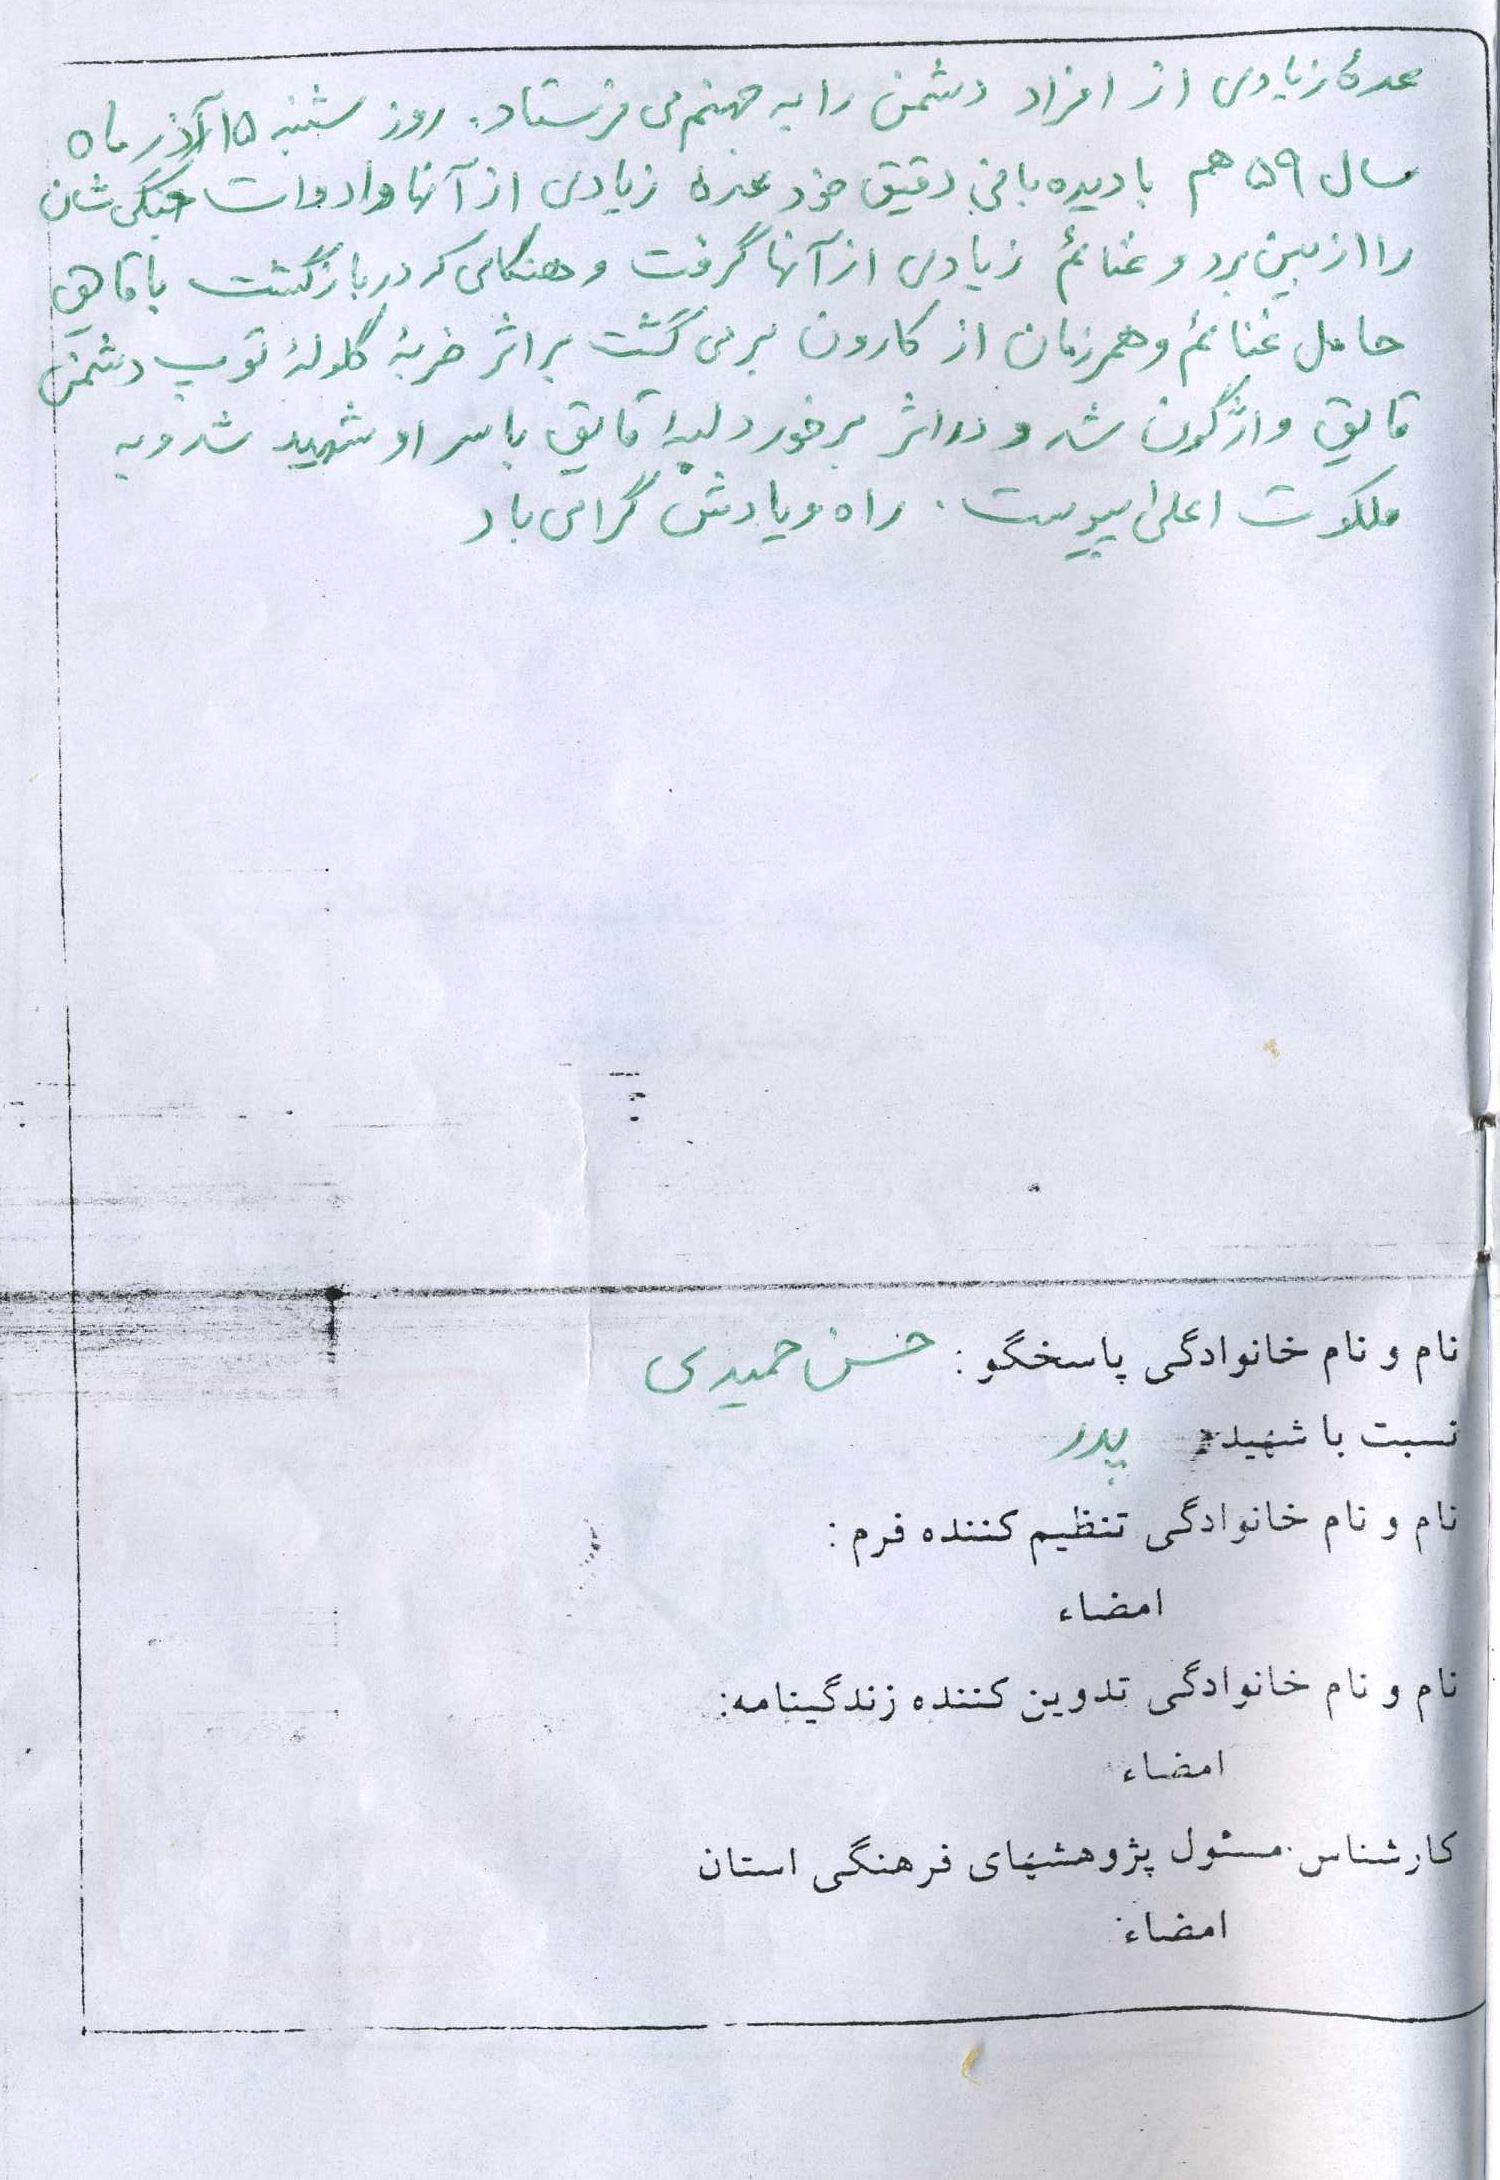 عدهٔ زیادی از افراد دشمن را به جهنم می فرستاد. روز شنبه ۱۵ آذر ماه
سال ۵۹ هم با دیده بانی دقیق خود عدهٔ زیادی از آنها و ادوات جنگی شان
را از بین برد و غنائم زیادی از آنها گرفت و هنگامی که در بازگشت با قایق
حامل غنائم و همرزمان از کارون بر می گشت بر اثر ضربهٔ گلولهٔ توپ دشمن
قایق واژگون شد و در اثر برخورد لبهٔ قایق با سر او شهید شد و به
ملکوت اعلی پیوست. راه و یادش گرامی باد
نام و نام خانوادگی پاسخگو : حسن حمیدی
نسبت با شهید: پدر
نام و نام خانوادگی تنظیم کننده فرم :
امضاء
نام و نام خانوادگی تدوین کننده زندگینامه:
امضاء
کارشناس مسئول پژوهشهای فرهنگی استان
امضاء: